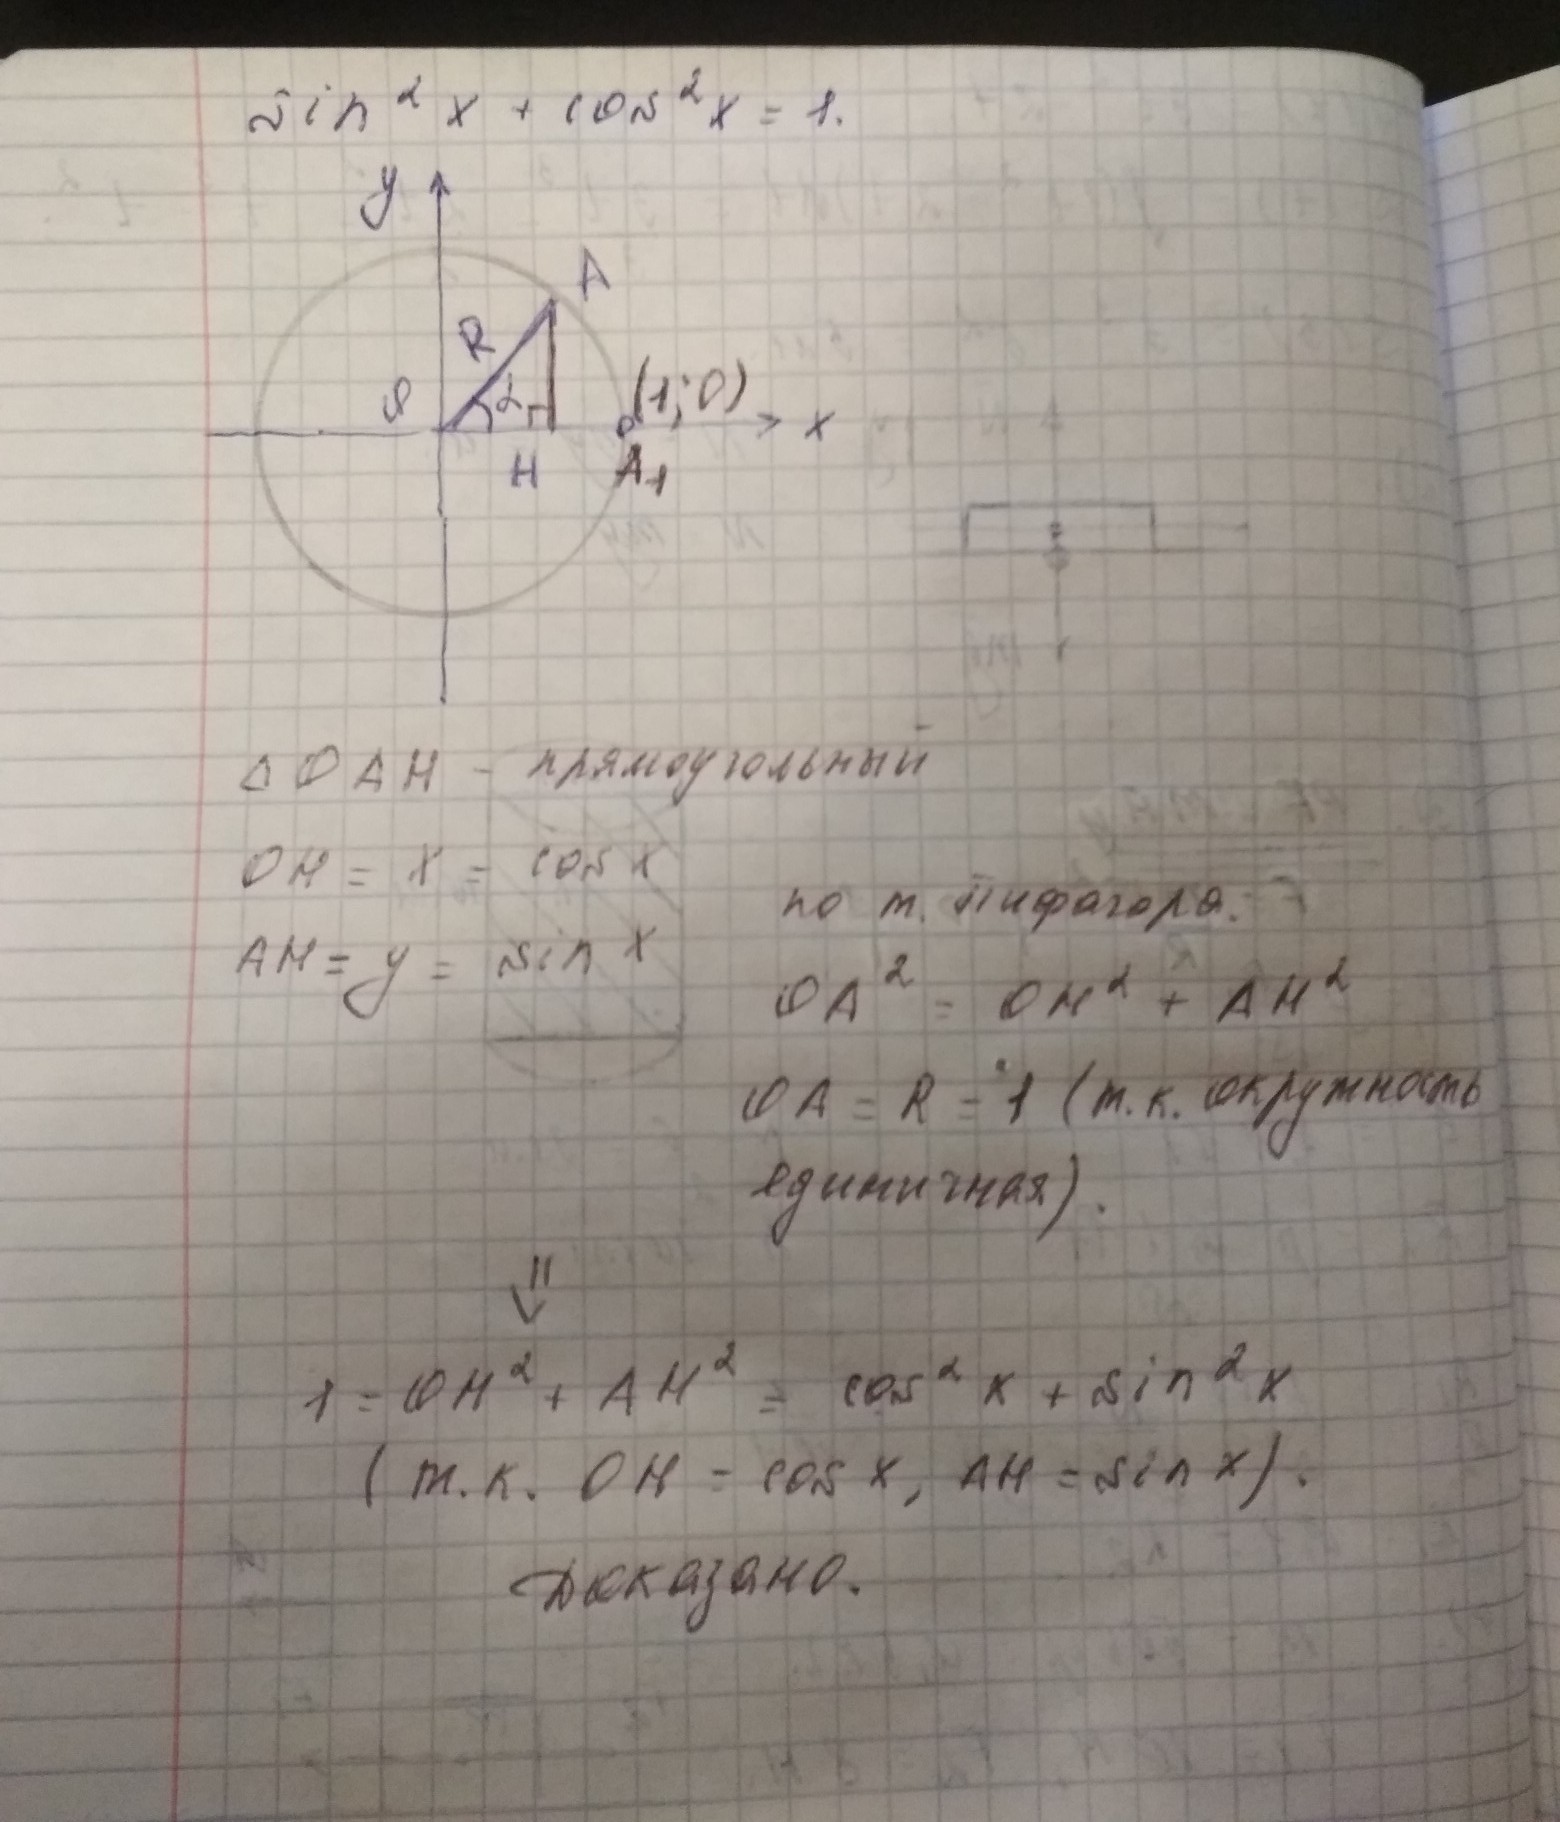 sin²x + cos²x = 1.
y
A
R
α
(1; 0)
O
x
H
A₁
Δ OAH - прямоугольный
OH = x = cos x
AH = y = sin x
по т. Пифагора.
OA² = OH² + AH²
OA = R = 1 (т.к. окружность
единичная).
⇓
1 = OH² + AH² = cos²x + sin²x
(т.к. OH = cos x, AH = sin x).
Доказано.